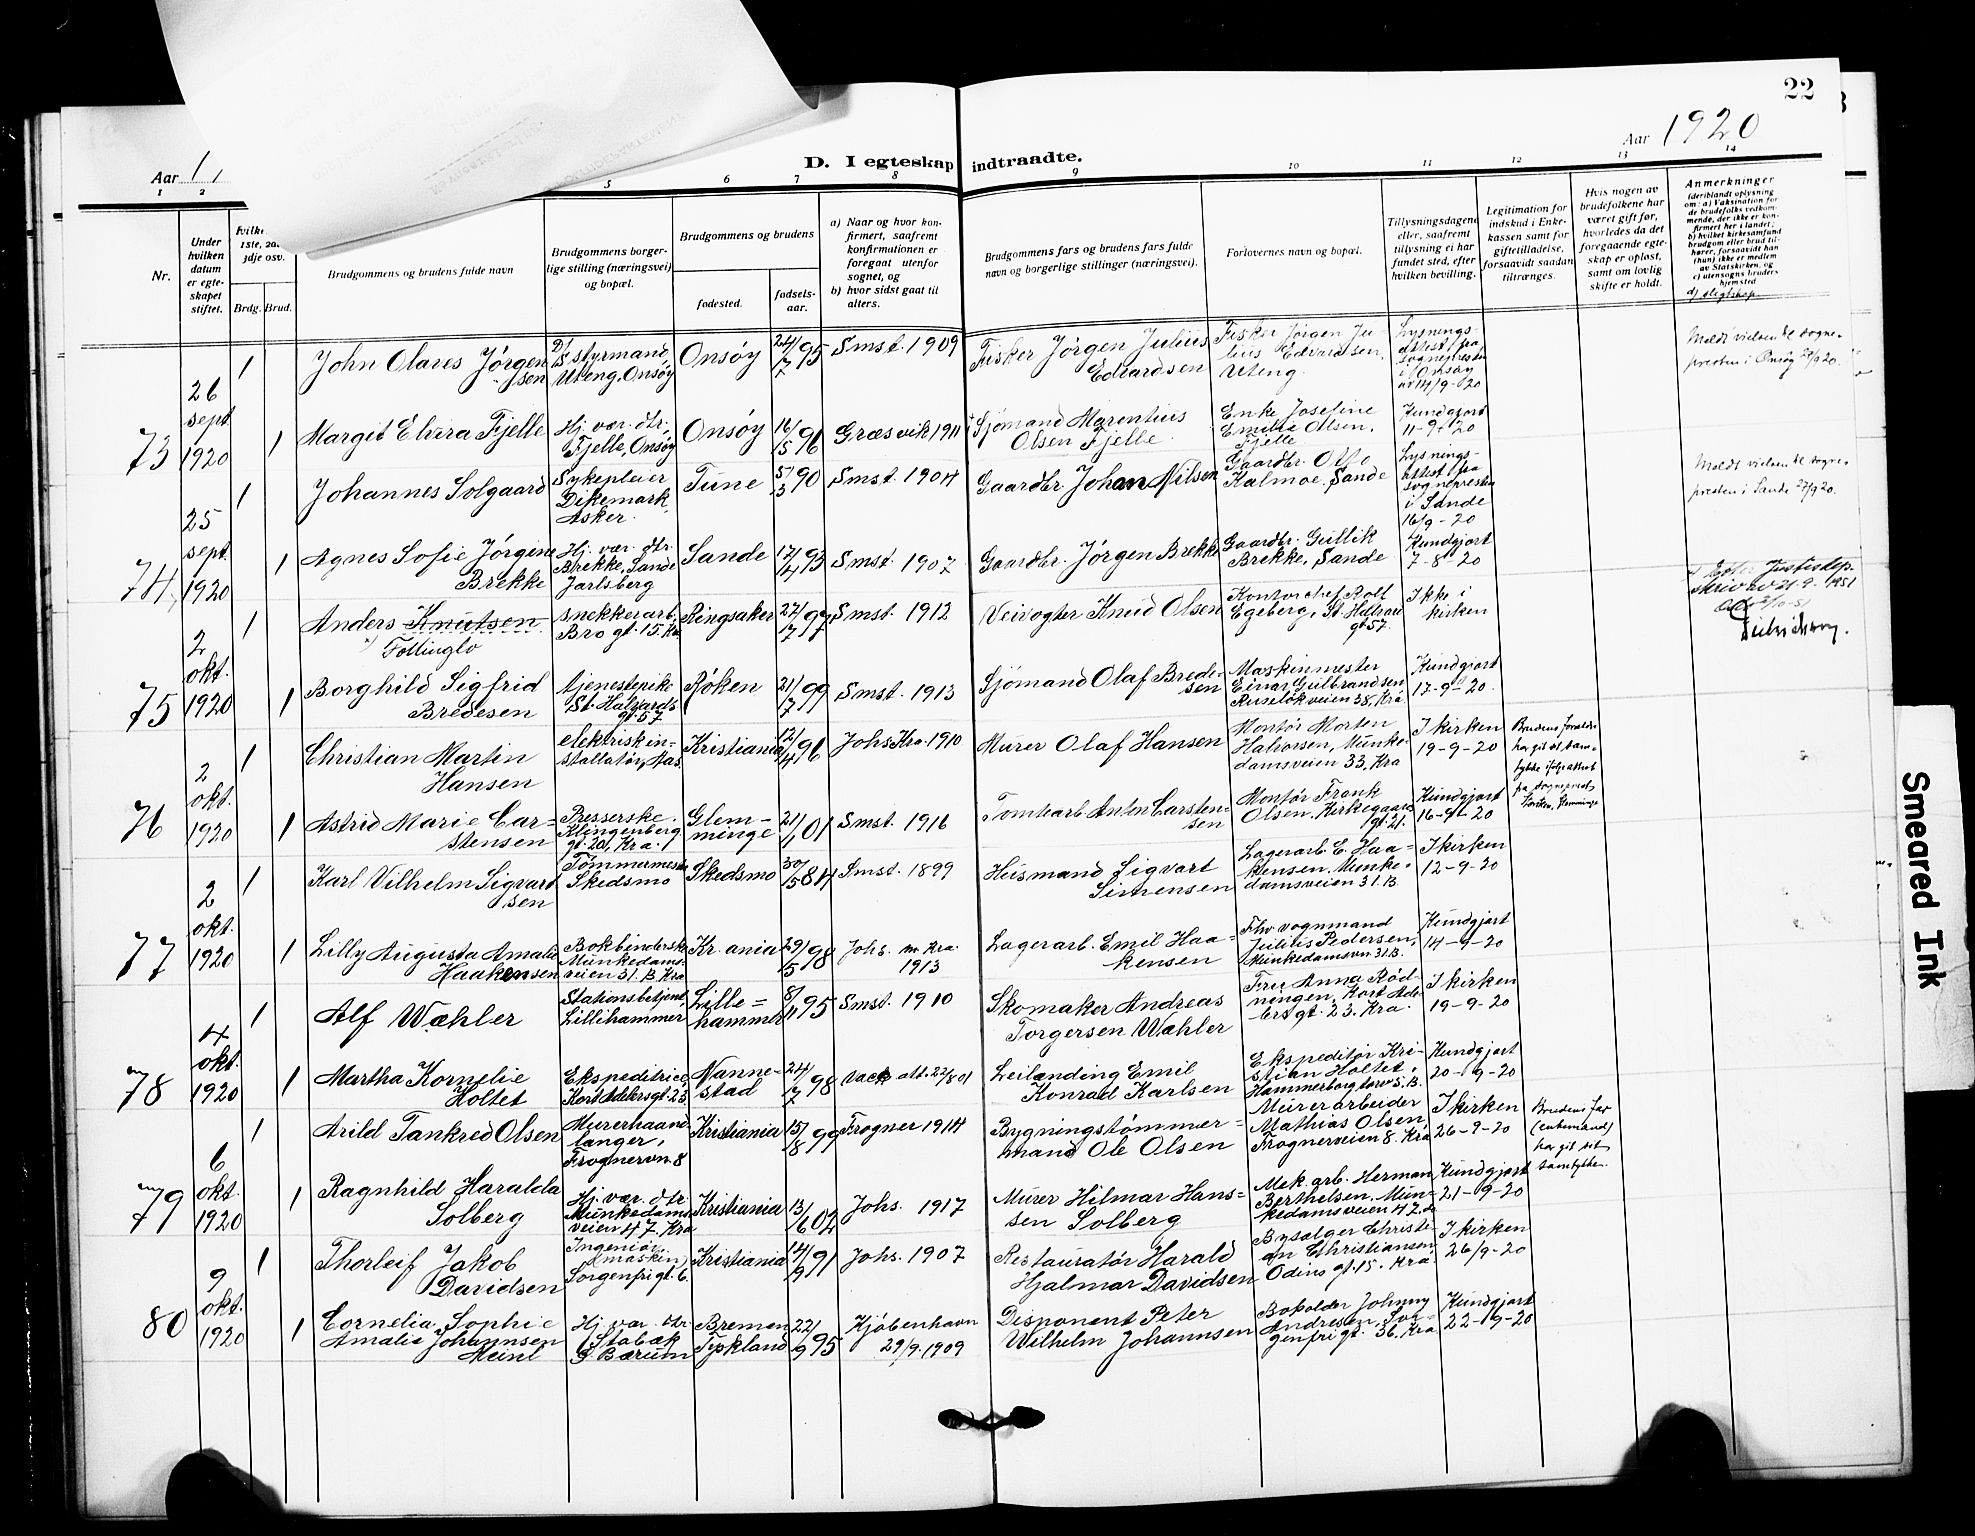 22
Aar 1920
D. I egteskap indtraadte.
Aar 1
1 2 5 6 7 8 9 10 11 12 13 14
Nr.
Under
hvilken
datum
er egte-
skapet
stiftet.
Brdg. Brud.
Brudgommens og brudens fulde navn
Brudgommens borger-
lige stilling (næringsvei)
og bopæl.
Brudgommens og brudens
fødested.
fødsels-
aar.
a) Naar og hvor kon-
firmert, saafremt
konfirmationen er
foregaat utenfor
sognet, og
b) hvor sidst gaat til
alters.
Brudgommens fars og brudens fars fulde
navn og borgerlige stillinger (næringsvei).
Forlovernes navn og bopæl.
Tillysningsdagene
eller, saafremt
tillysning ei har
fundet sted, efter
hvilken bevilling.
Legitimation for
indskud i Enke-
kassen samt for
giftetilladelse,
forsaavidt saadan
tiltrænges.
Hvis nogen av
brudefolkene har
været gift før,
hvorledes da det
foregaaende egte-
skap er opløst,
samt om lovlig
skifte er holdt.
Anmerkninger
(deriblandt oplysning
om: a) Vaksination for
de brudefolks vedkom-
mende, der ikke er kon-
firmert her i landet;
b) hvilket kirkesamfund
brudgom eller brud til-
hører, forsaavidt han
(hun) ikke er medlem
av Statskirken, og
c) utensogns bruders
hjemsted
d) slegtskap.
73
26
sept.
1920
1
John Olares Jørgen-
sen
styrmand,
Uteng, Onsøy
Onsøy
24/7 95
Smst. 1909
Fisker Jørgen Julius
Edvardsen
Fisker Jørgen Ju-
lius Edvardsen,
Uteng.
Lysnings-
attest fra
sognepresten
i Onsøy
av 14/9-20
Meldt vielsen til sogne-
presten i Onsøy 27/9 20.
1
Margit Elvira Fjelle
Hj. vær. dtr.
Fjelle, Onsøy
Onsøy
16/5 96
Græsvik 1911
Sjømand Marentius
Olsen Fjelle
Enke Josefine
Emilie Olsen,
Fjelle
Kundgjort
11-9-20
74
25
sept.
1920
1
Johannes Solgaard
Sykepleier
Dikemark,
Asker.
Tune
5/3 90
Smst. 1904
Gaardbr. Johan Nilsen
Gaardbr. Otto
Kalmoe, Sande
Lysnings-
attest fra
sognepresten
i Sande
16/9-20
Meldt vielsen til sogne-
presten i Sande 27/9 20.
1
Agnes Sofie Jørgine
Brekke
Hj. vær. dtr.
Brekke, Sande
Jarlsberg
Sande
17/4 93
Smst. 1907
Gaardbr. Jørgen Brekke
Gaardbr. Gullik
Brekke, Sande
Kundgjort
7-8-20
75
2
okt.
1920
1
Anders Knutsen
Follinglo
Snekkerarb.
Bro gt. 15. Kra
Ringsaker
27/7 97
Smst. 1912
Veivogter Knud Olsen
Kontorchef Rolf
Egeberg, St. Halvard
gt 57.
Ikke i
kirken
skriv av 21.9.1951
1
Borghild Sigfrid
Bredesen
tjenestepike
St. Halvards
gt. 57
Røken
21/7 99
Smst. 1913
Sjømand Olaf Brede-
sen
Maskinmester
Einar Gulbrandsen
Ruseløkveien 38, Kra
Kundgjort
17-9-20.
76
2
okt.
1920
1
Christian Martin
Hansen
elektrisk in-
stallatør, Aas
Kristiania
12/4 96
Johs Kra. 1910
Murer Olaf Hansen
Montør Morten
Halvorsen, Munke-
damsveien 33, Kra
I kirken
19-9-20
Brudens forældre
har git sit sam-
tykke
1
Astrid Marie Car-
stensen
Presserske.
Klingenberg
gt. 20, Kra.
Glem-
minge
21/1 01
Smst. 1916
Tomtearb. Anton Carsten-
sen
Montør Frank
Olsen, Kirkegaards
gt. 21.
Kundgjort
16-9-20
77
2
okt.
1920
1
Karl Vilhelm Sigvart-
sen
Tømmermester
Skedsmo
Skedsmo
30/5 84
Smst. 1899
Husmand Sigvart
Simensen
Lagerarb. E. Haa-
kensen. Munke-
damsveien 31. B.
I kirken
12-9-20
1
Lilly Augusta Amalie
Haakensen
Bokbinderske
Munkedams-
veien 31. B. Kra
Kr.ania
29/5 98
Johs. Kra.
1913
Lagerarb. Emil Haa-
kensen
Fhv vognmand
Julius Pedersen,
Munkedamsvn 31.B.
Kundgjort
14-9-20
78
4
okt.
1920
1
Alf Wæhler
Stationsbetjent
Lillehammer
Lille-
hammer
8/11 95
Smst. 1910
Skomaker Andreas
Torgersen Wæhler
Fru Anna Rød-
ningen, Kort Ade-
lersgt. 23. Kra.
I kirken
19-9-20
1
Martha Kornelie
Holtet
Ekspeditrice,
Kort Adelersgt. 23
Nanne-
stad
24/7 98
Leilænding Emil
Konrad Karlsen
Ekspeditør Kri-
stian Holtet,
Hammerborg torv 5. B.
Kundgjort
20-9-20
79
6
okt.
1920
1
Arild Tankred Olsen
Murerhaand-
langer,
Frognervn. 8
Kristiania
15/8 99
Frogner 1914
Bygningstømmer-
mand Ole Olsen
Murerarbeider
Mathias Olsen,
Frognerveien 8. Kra
I kirken
26-9-20
Brudens far
(enkemand)
har git sit
samtykke.
1
Ragnhild Haralda
Solberg
Hj. vær. dtr.
Munkedams-
veien 47. Kra
Kristiania
13/6 02
Johs. 1917
Murer Hilmar Hans-
sen Solberg
Mek. arb. Herman
Berthelsen, Mun-
kedamsveien 47.
Kundgjort
21-9-20
80
9
okt.
1920
1
Thorleif Jakob
Davidsen
Ingeniør
(maskin)
Sorgenfrigt. 6.
Kristiania
14/9 91
Johs. 1907
Restauratør Harald
Hjalmar Davidsen
Bysælger Christi-
an Christiansen
Odins gt. 15. Kra.
I kirken
26/9-20
1
Cornelia Sophie
Amalie Johannsen
Meinl
Hj. vær. dtr.
Stabæk
Bærum
Bremen
Tyskland
22/9 95
Kjøbenhavn
29/9. 1909
Disponent Peter
Wilhelm Johannsen
Bokolder Johnny
Andresen, Sor-
genfri gt. 36. Kra
Kundgjort
22-9-20
Smeared Ink